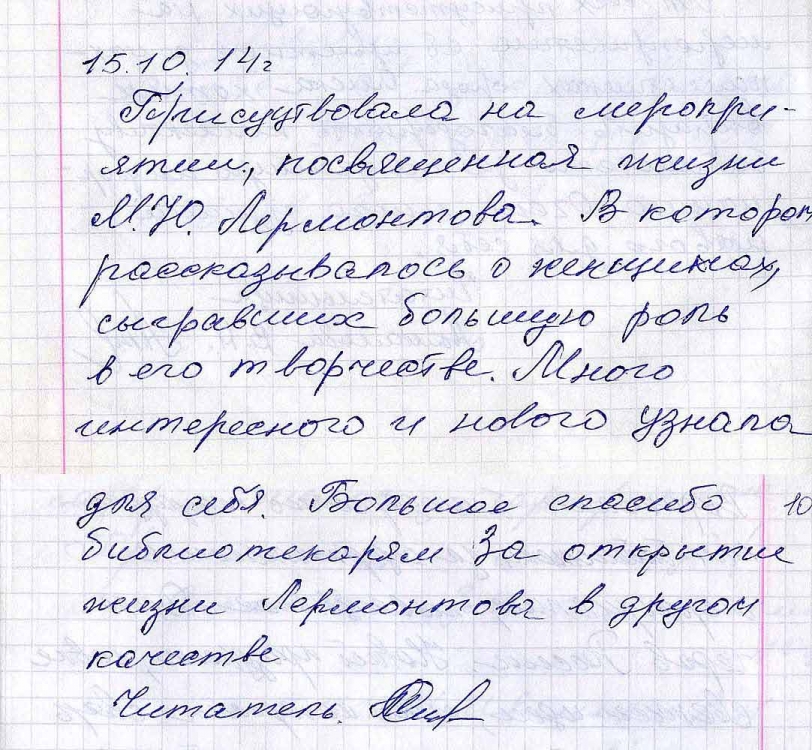 15.10.14г
Присутствовала на меропри-
ятии, посвященная жизни
М.Ю. Лермонтова. В котором
рассказывалось о женщинах,
сыгравших большую роль
в его творчестве. Много
интересного и нового узнала
для себя. Большое спасибо
10
библиотекарям За открытие
жизни Лермонтова в другом
качестве
Читатель.